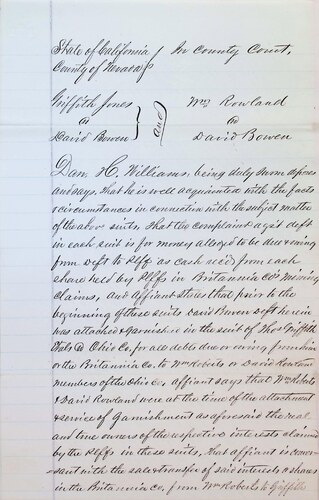 State of California } In County Court,
County of Nevada }
Griffith Jones Wm Rowland
vs } and { vs
David Bowen David Bowen
Dan. H. Williams, being duly sworn deposes
and says. That he is well acquainted with the facts
& circumstances in connection with the subject matter
of the above suits, That the complaint agst deft
in each suit is for money alleged to be due & owing
from Deft to Plff as cash recd from each
share held by Plffs in Britannia Co's Mining
Claims, and Affiant states that prior to the
beginning of these suits David Bowen Deft herein
was attached & garnishee in the suit of Thos Griffith
vs Ohio Co, for all debts due or owing from him
or the Britannia Co. to Wm Roberts or David Rowland
members of the Ohio Co. affiant says that Wm Roberts
& David Rowland were at the time of the attachment
& service of Garnishment as aforesaid the real
and true owners of the respective interests claimed
by the Plffs in these suits, that affiant is conver-
sant with the sale & transfer of said interests & shares
in the Britannia Co. from Wm Roberts to Griffith